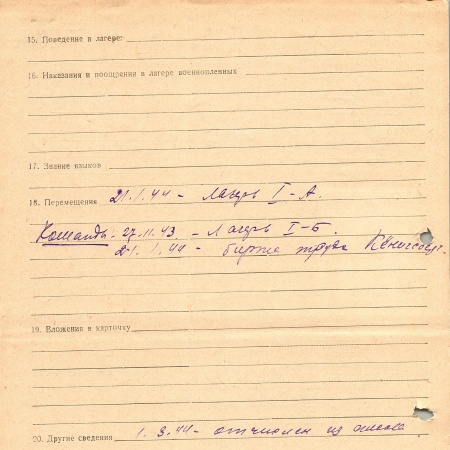 15. Поведение в лагере:
16. Наказания и поощрения в лагере военнопленных
17. Знание языков
18. Перемещения 21.1.44 - лагерь I-А.
Команды - 27.11.43. - лагерь I-Б.
21.1.44 - биржа труда Кёнигсберг.
19. Вложения в карточку
20. Другие сведения 1.3.44 - отчислен из